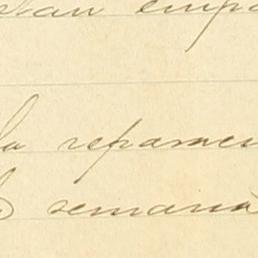 stan emp
la reparamen
semana